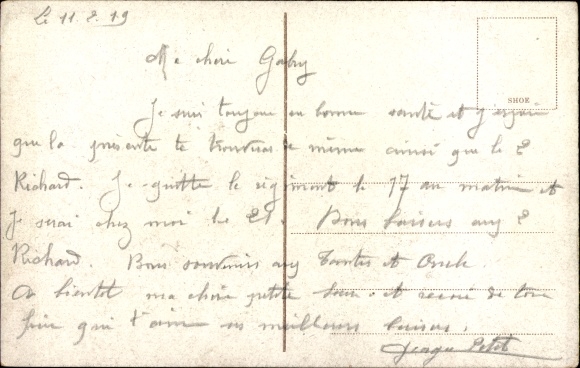 Le 11.8.19
Ma chère Gaby
SHOE
Je suis toujours en bonne santé et j'espère
que la présente te trouveras de même ainsi que le P
Richard. Je quitte le régiment le 17 au matin et
Je serai chez moi le 21. Bons baisers aux P
Richard. Bons souvenirs aux Tantes et Oncle.
A bientôt ma chère petite et reçoit de ton
qui t'aime ses meilleurs baisers.
Georges Petit